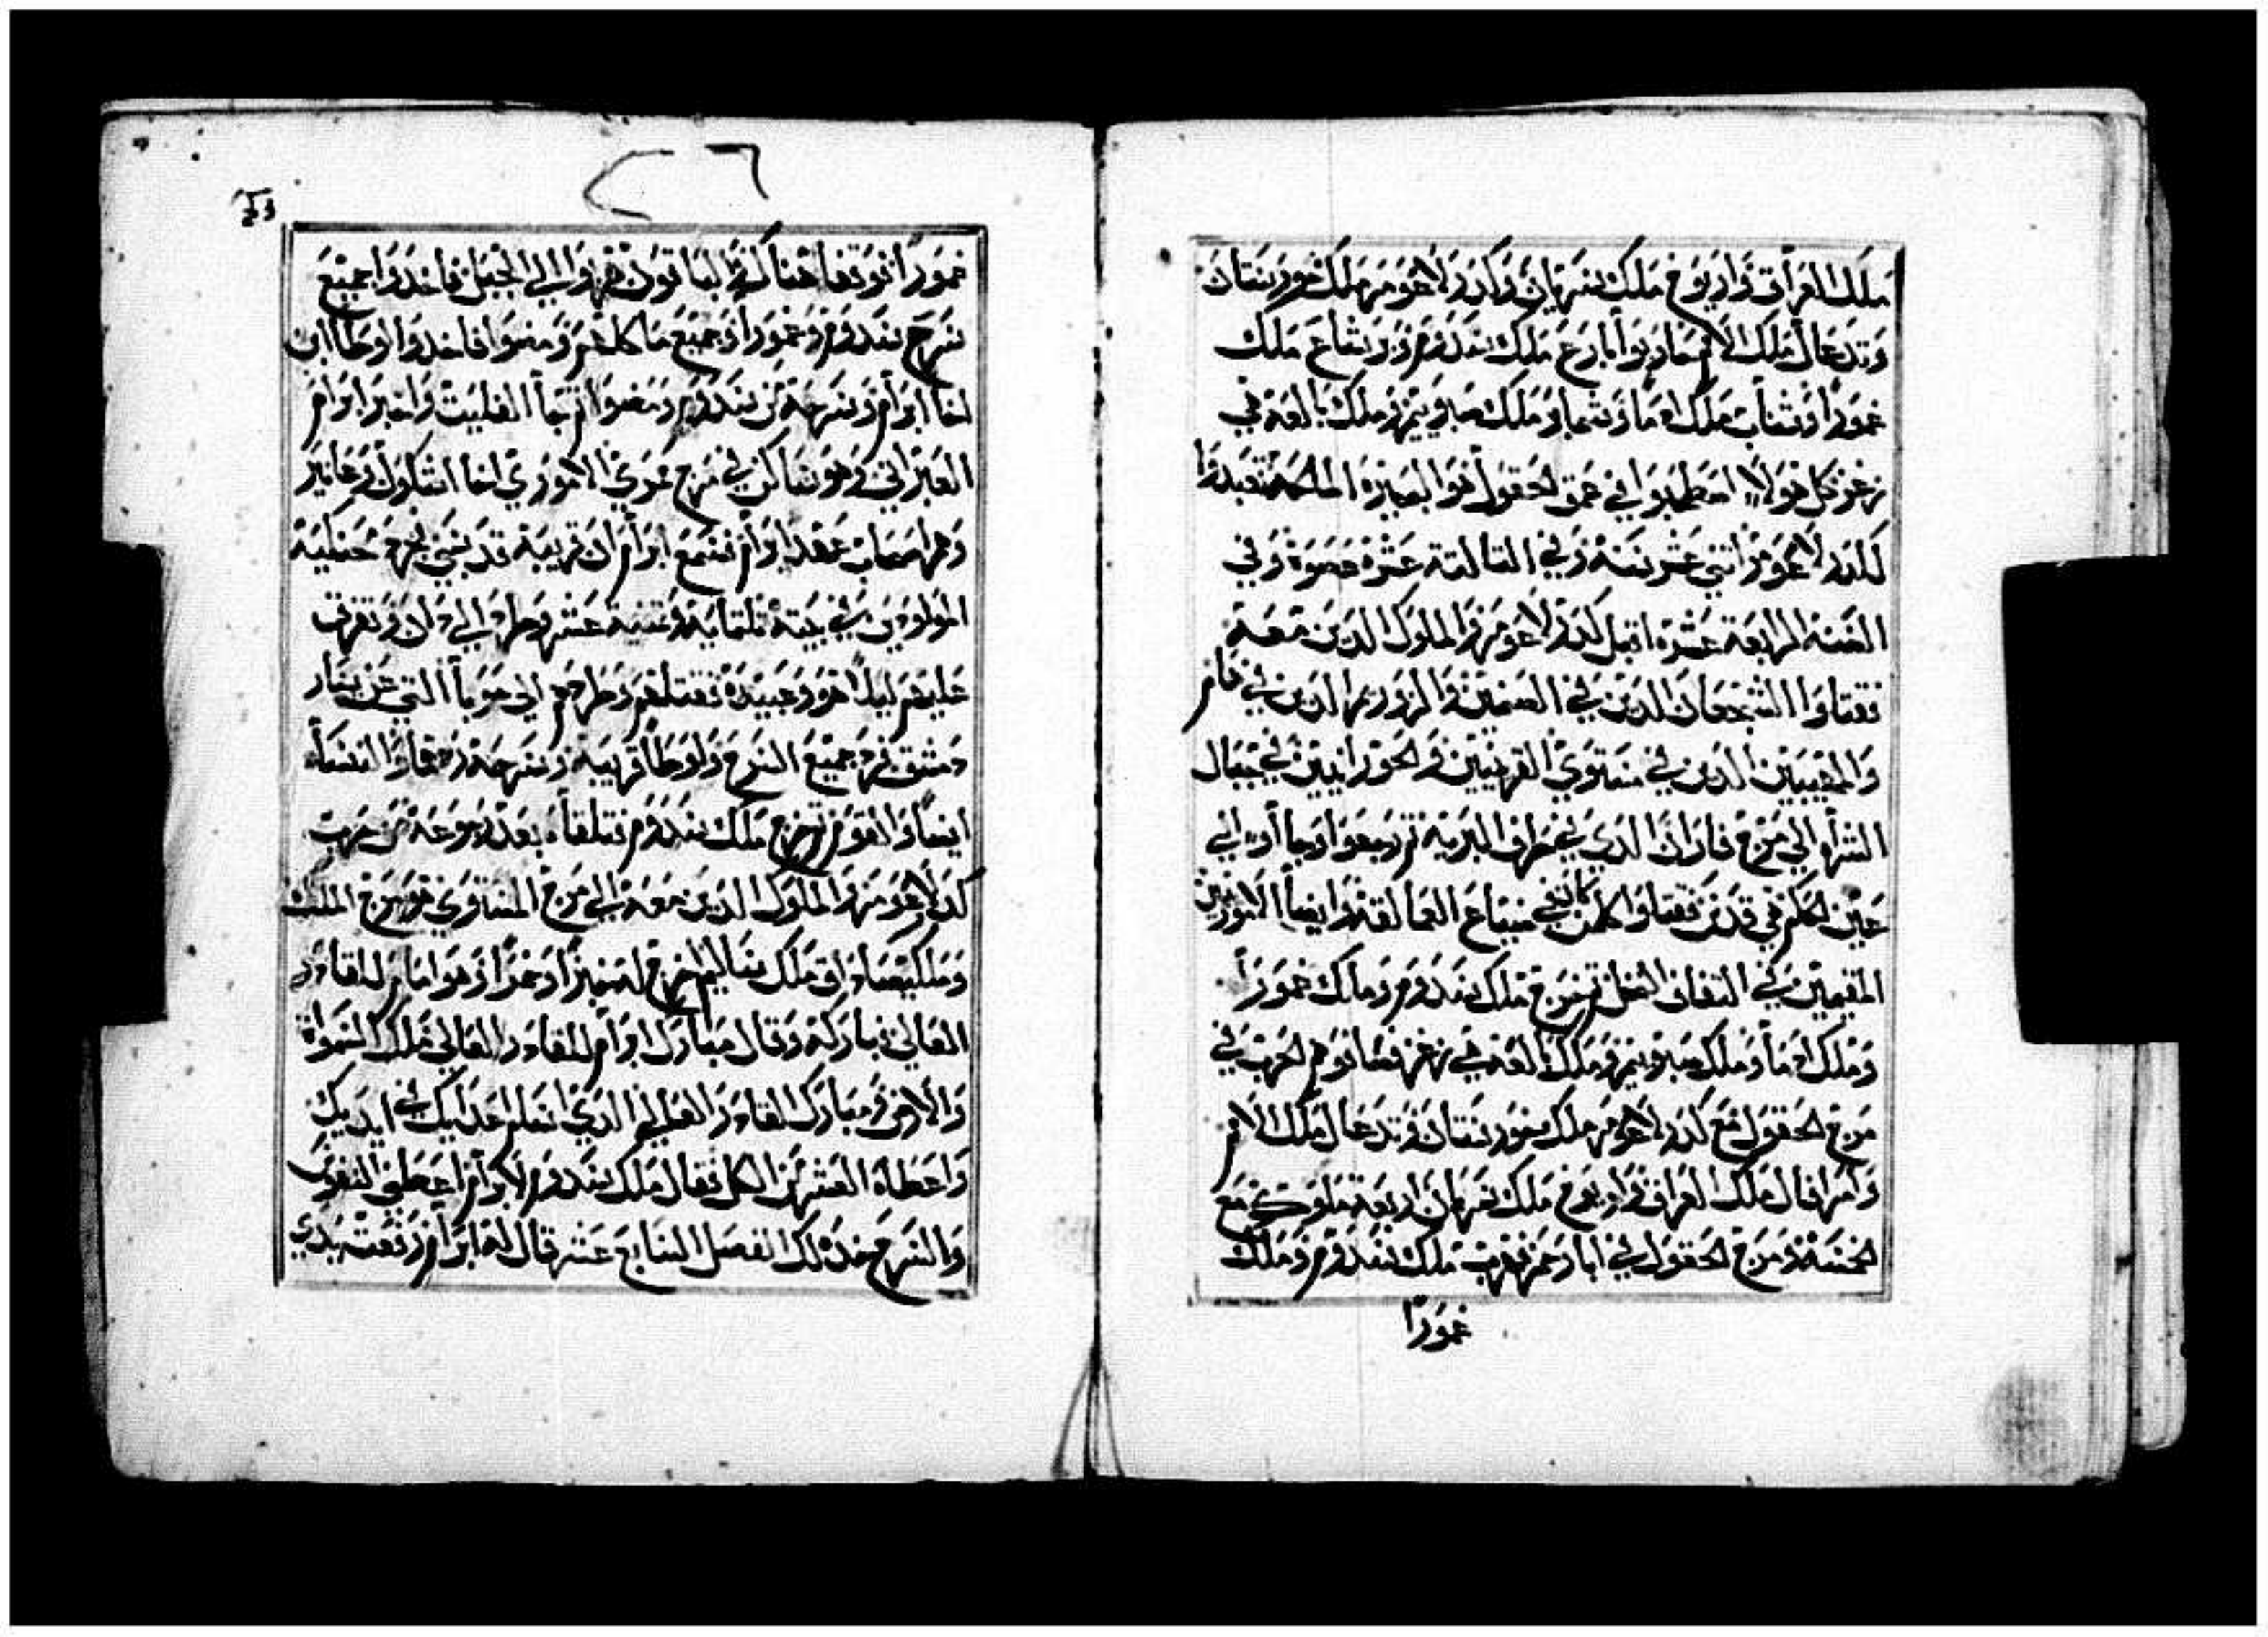 ملك العراق واريوخ ملك سرمان وكدرلاعومر ملك خورستان
وتدعال ملك الامم حاربوا بارع ملك سدوم وبرشاع ملك
عمورا وشناب ملك ادما وشمابر ملك صبويم وملك بالع هي
زغر كل هولا اصطحبوا في عمق الحقول هو البحيرة المالحة تعبدوا
لكدرلاعومر اثني عشر سنة وفي التالتة عشرة عصوه وفي
السنة الرابعة عشرة اقبل كدرلاعومر والملوك الدين معه
فقتلوا الشجعان الدين في الصنمين والزوزيم الدين في هام
والمهيبين الدين في مستوي القريتين والحورانيين في جبال
الشراه الي مرج فاران الدي في طرف البرية ثم رجعوا وجاأوا الي
عين الحكم هي قدس فقتلوا كلمن كان في ضياع العمالقة وايضاً الامورين
المقيمين في التفاف النخل فخرج ملك سدوم وملك عمورا
وملك ادما وملك صبويم وملك بالع هي زغر فصافوهم الحرب في
مرج الحقول مع كدرلاعومر ملك خورستان وتدعال ملك الامم
وامرافال ملك العراق واريوخ ملك سرمان اربعة ملوك مع
الخمسة ومرج الحقول فيه ابار حمر فهرب ملك سدوم وملك
عمورا
عمورا فوقعا هناك والباقون هربوا الي الجبل فاخدوا جميع
سرح سدوم وعمورا وجميع ماكلهم ومضوا فاخدوا لوطا ابن
اخا ابرام وسرحه من سدوم ومضوا فجاأ الفليت واخبر ابرام
العبراني وهو ساكن في مرج ممري الاموري اخا اشكول وعانير
وهم اصحاب عهد ابرام فسمع ابرام ان قريبه قد سبي فجرد حنكية
المولودين في بيته تلتماية وتمنية عشر وطرد الي دان وتفرق
عليهم ليلا هو وعبيده فقتلهم وطردهم الي حوبا التي عن يسار
دمشق فرد جميع السرح ولوطا قريبه وسرحه ردها والنساء
ايضا والقوم فخرج ملك سدوم فتلقاه بعد رجوعه من حرب
كدرلاعومر والملوك الدين معه الي مرج المستوي هو مرج الملك
وملكيصاداق ملك ساليم اخرج له خبزا وخمرا وهو امام للقادر
العالي فباركه وقال مبارك ابرام للقادر العالي ملك السموات
والارض ومبارك القادر العالي الدي اسلم اعداك في ايديك
واعطاه العشر من الكل فقال ملك سدوم لابرام اعطني النفوس
والسرح خد لك الفصل السابع عشر قال له ابرام رفعت يدي